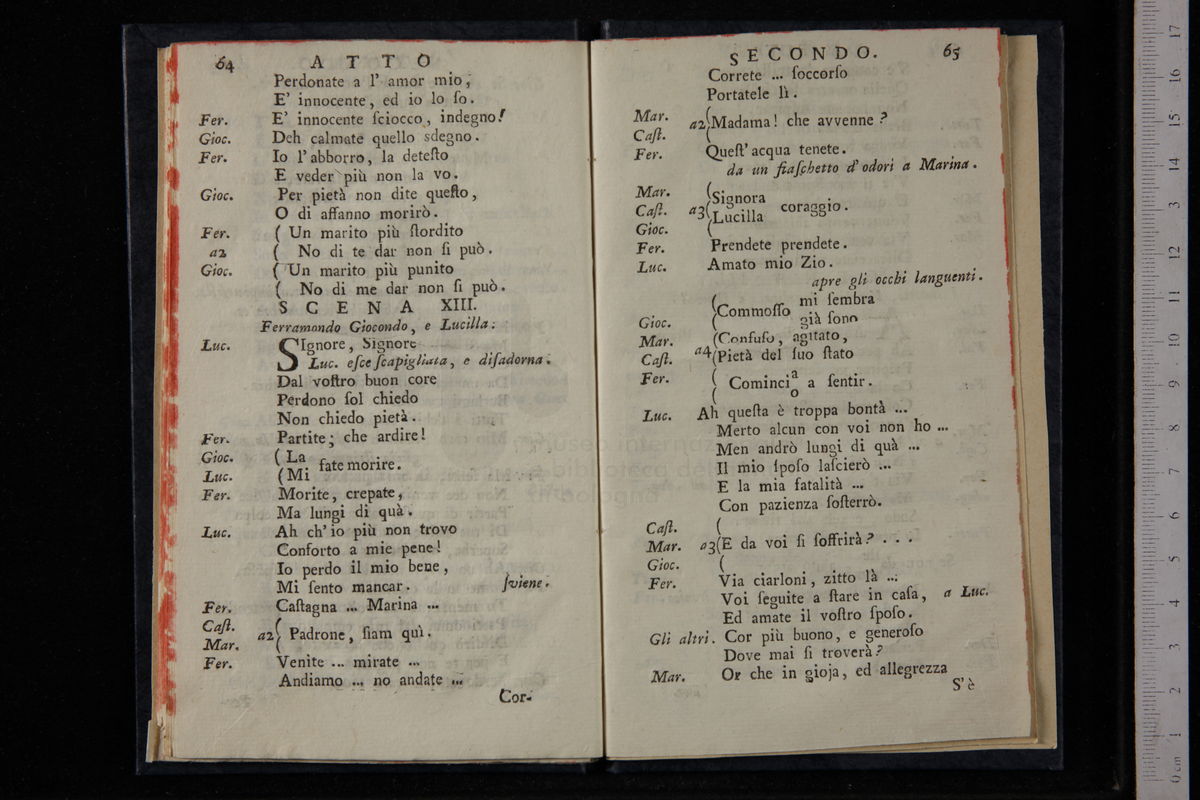 64 ATTO
Perdonate a l' amor mio,
E' innocente, ed io lo ſo.
Fer. E' innocente ſciocco, indegno!
Gioc. Deh calmate quello sdegno.
Fer. Io l'abborro, la deteſto
E veder più non la vo.
Gioc. Per pietà non dite queſto,
O di affanno morirò.
Fer. ( Un marito più ſtordito
a2 ( No di te dar non ſi può.
Gioc. ( Un marito più punito
( No di me dar non ſi può.
SCENA XIII.
Ferramondo Giocondo, e Lucilla:
Luc. SIgnore, Signore
Luc. eſce ſcapigliata, e diſadorna.
Dal voſtro buon core
Perdono ſol chiedo
Non chiedo pietà.
Fer. Partite; che ardire!
Gioc. ( La
fate morire.
Luc. ( Mi
Fer. Morite, crepate,
Ma lungi di quà.
Luc. Ah ch'io più non trovo
Conforto a mie pene!
Io perdo il mio bene,
Mi ſento mancar. ſviene.
Fer. Caſtagna ... Marina ...
Caſt. (
a2( Padrone, ſiam quì.
Mar. (
Fer. Venite ... mirate ...
Andiamo ... no andate ...
Cor-
SECONDO. 65
Correte ... ſoccorſo
Portatele lì.
Mar. (
a2(Madama! che avvenne?
Caſt. (
Fer. Queſt'acqua tenete.
da un fiaſchetto d'odori a Marina.
Mar. (Signora
Caſt. a3( coraggio.
(Lucilla
Gioc. (
Fer. Prendete prendete.
Luc. Amato mio Zio.
apre gli occhi languenti.
( mi ſembra
(Commoſſo
Gioc. ( già ſono
Mar. (Confuſo, agitato,
Caſt. a4(Pietà del ſuo ſtato
Fer. ( Cominci a a ſentir.
( o
Luc. Ah queſta è troppa bontà ...
Merto alcun con voi non ho ...
Men andrò lungi di quà ...
Il mio ſpoſo laſcierò ...
E la mia fatalità ...
Con pazienza ſoſterrò.
Caſt. (
Mar. a3(E da voi ſi ſoffrirà? . . .
Gioc. (
Fer. Via ciarloni, zitto là ...
Voi ſeguite a ſtare in caſa, a Luc.
Ed amate il voſtro ſpoſo.
Gli altri. Cor più buono, e generoſo
Dove mai ſi troverà?
Mar. Or che in gioja, ed allegrezza
S'è